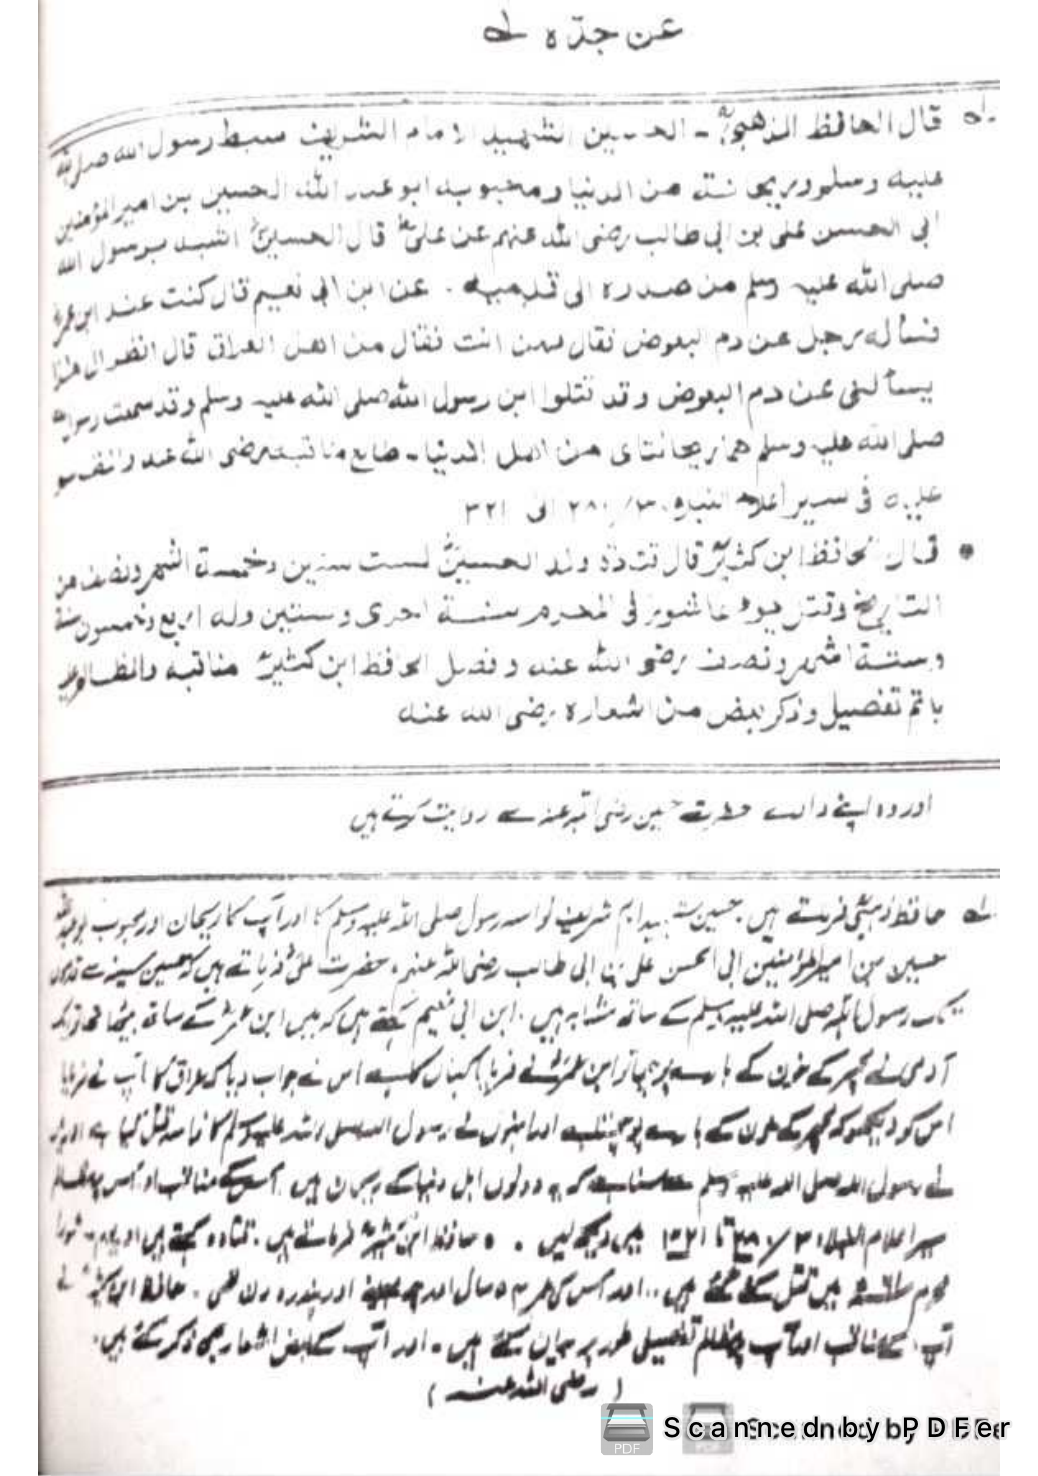 عن جدّه لہ
لہ قال الحافظ الذهبیؒ - الحسین الشهید الامام الشریف سبط رسول الله صلی الله
علیه وسلم وریحانته من الدنیا ومحبوبه ابو عبد الله الحسین بن امیر المؤمنین
ابی الحسن علی بن ابی طالب رضی الله عنهم عن علیؓ قال الحسینؓ اشبه برسول الله
صلی الله علیه وسلم من صدره الی قدمیه . عن ابن ابی نعیم قال کنت عند ابن عمرؓ
فسأله رجل عن دم البعوض فقال ممن انت فقال من اهل العراق قال انظر الی هذا
یسألنی عن دم البعوض وقد قتلوا ابن رسول الله صلی الله علیه وسلم وقد سمعت رسول الله
صلی الله علیه وسلم هما ریحانتای من اهل الدنیا - طالع مناقبه رضی الله عنه
علیه فی سیر اعلام النبلاء ۳/ ۲۸۰ الی ۳۲۱
• قال الحافظ ابن کثیرؒ قال قتادة ولد الحسینؓ لست سنین وخمسة اشهر ونصف من
التاریخ وقتل یوم عاشوراء فی المحرم سنة احدی وستین وله اربع وخمسون سنة
وستة اشهر ونصف رضی الله عنه وفصل الحافظ ابن کثیرؒ مناقبه والمظالم علیه
باتم تفصیل وذکر بعض من اشعاره رضی الله عنه
اور وہ اپنے والد حضرت حسین رضی اللہ عنہ سے روایت کرتے ہیں
لہ حافظ ذہبیؒ فرماتے ہیں . حسین شہید امام شریف نواسہ رسول صلی اللہ علیہ وسلم کا اور آپ کا ریحان اور محبوب ابو عبداللہ
حسین بن امیر المؤمنین ابی الحسن علی بن ابی طالب رضی اللہ عنہم، حضرت علیؓ فرماتے ہیں کہ حسین سینہ سے قدموں
تک رسول اللہ صلی اللہ علیہ وسلم کے ساتھ مشابہ ہیں . ابن ابی نعیم کہتے ہیں کہ میں ابن عمرؓ کے ساتھ بیٹھا تھا تو ایک
آدمی نے مچھر کے خون کے بارے پوچھا تو ابن عمرؓ نے فرمایا کہاں کا ہے اس نے جواب دیا کہ عراق کا آپ نے فرمایا
اس کو دیکھو کہ مچھر کے خون کے بارے پوچھتا ہے اور انہوں نے رسول اللہ صلی اللہ علیہ وسلم کا نواسہ قتل کیا ہے اور میں
نے رسول اللہ صلی اللہ علیہ وسلم سے سنا ہے کہ یہ دونوں اہل دنیا کے ریحان ہیں . آپ کے مناقب اور اس پر مظالم
سیر اعلام النبلاء ۳/ ۲۸۰ تا ۳۲۱ میں دیکھ لیں . • حافظ ابن کثیرؒ فرماتے ہیں . قتادہ کہتے ہیں اور یوم عاشورا
محرم ۶۱ھ میں قتل کئے گئے ہیں .. اور اس کی عمر ۵۴ سال اور چھ مہینے اور پندرہ دن تھی . حافظ ابن کثیرؒ نے
آپ کے مناقب اور آپ پر مظالم تفصیلی طور پر بیان کئے ہیں - اور آپ کے بعض اشعار بھی ذکر کئے ہیں .
( رضی اللہ عنہ )
Scanned by PDFer